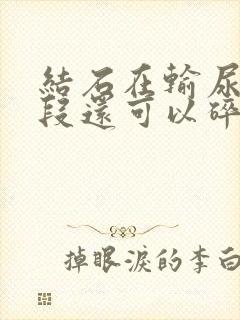 結石在輸尿
段還可以碎
掉眼淚的李白